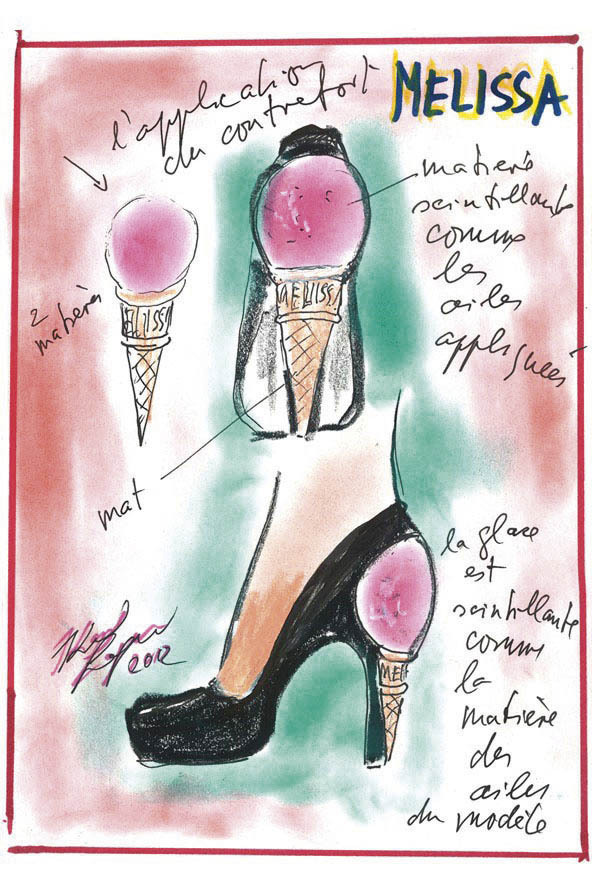 l'application
du contrefort
MELISSA
matières
scintillante
comme
les
ailes
appliquées
2
matières
MELISSA
mat
la glace
est
scintillante
comme
la
matière
des
ailes
du modèle
MEL
2012